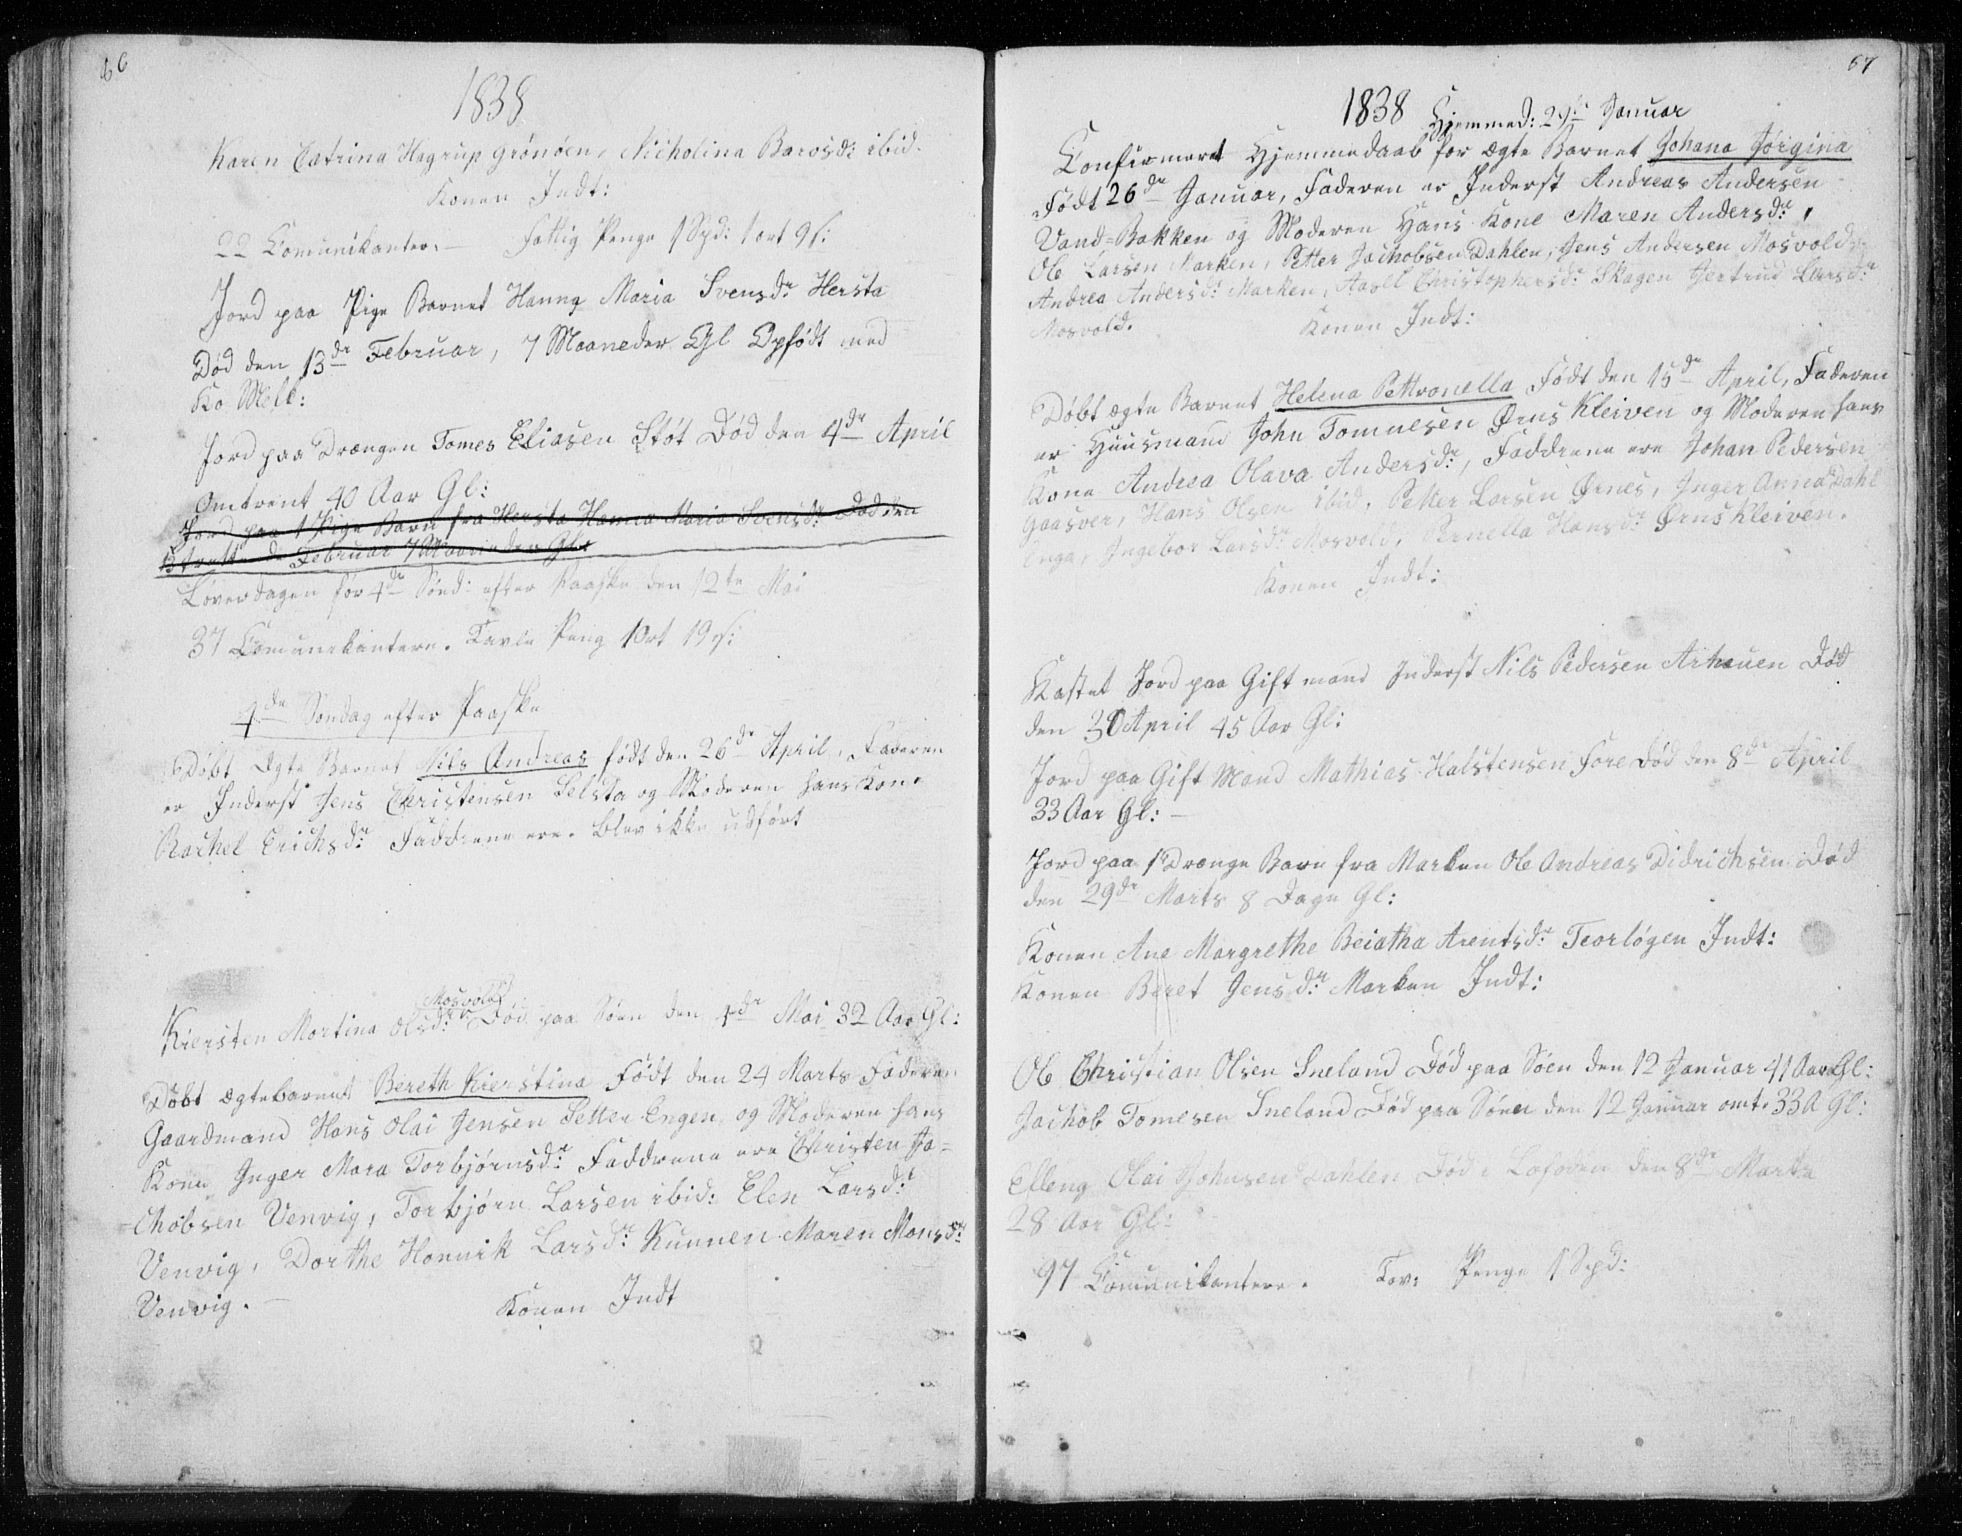 66
1838
Karen Catrina Hagrup Grønøen, Nicholina Barosd: ibid.
Konen Indt:
22 Comunikanter. Fattig Penge 1 Spd: 1 ort 9 s:
Jord paa Pige Barnet Hanna Maria Svensdr Hersta
Død den 13de Februar, 7 Maaneder Gl Opfødt med
Ko Melk:
Jord paa Drængen Tomes Eliasen Støt Død den 4de April
Omtrent 40 Aar Gl:
Jord paa 1 Pige Barn fra Hersta Hanna Maria Svensdr Død den
Februar 7 Maaneder Gl:
Løverdagen før 4de Sønd: efter Paaske den 12te Mai
37 Comunikantere. Tavle Peng 1 Ort 19 s:
4de Søndag efter Paaske
Døbt Ægte Barnet Nils Andreas født den 26de April, Faderen
er Inderst Jens Christensen Selsta og Moderen hans Kone
Rachel Erichsdr Faddrene ere. blev ikke udført
Mosvold
Kiersten Martina Olsdr: Død paa Søen den 4de Mai 32 Aar Gl:
Døbt ægtebarnet Bereth Kierstina Født den 24 Marts Faderen
Gaardmand Hans Olai Jensen Setter Engen og Moderen hans
Kone Inger Mara Torbjørnsdr: Faddrene ere Christen Ja=
=chobsen Venvig, Torbjørn Larsen ibid: Elen Larsdr:
Venvig, Dorthe Honnik Larsdr: Kunnen Maren Monsdr:
Venvig.
Konen Indt
67
1838 Hjemmed: 29de Januar
Confirmeret Hjemmedaab for ægte Barnet Johana Jørgina
Født 26de Januar, Faderen er Inderst Andreas Andersen
Vand=Bakken og Moderen Hans Kone Maren Andersdr:,
Ole Larsen Marken, Petter Jachobsen Dahlen, Jens Andersen Mosvold,
Andrea Andersdr: Marken, Aasel Christophersdr: Skagen Jertrud Larsdr
Mosvold.
Konen Indt:
Døbt ægte Barnet Helena Pettronella Født den 15de April, Faderen
er Huusmand John Tomnesen Ørnskleiven og Moderen hans
Kone Andrea Olava Andersdr:, Faddrene ere Johan Pedersen
Gaasver, Hans Olsen ibid, Petter Larsen Ørnes, Inger Anna Dahl
Enga, Ingebor Larsdr Mosvold, Pernella Hansdr: Ørnskleiven.
Konen Indt:
Kastet Jord paa Gift mand Inderst Nils Pedersen Arhauen Død
den 30 April 45 Aar Gl:
Jord paa Gift Mand Mathias Halstensen Fore Død den 8de April
33 Aar Gl:
Jord paa 1 Drænge Barn fra Marken Ole Andreas Didrichsen Død
den 29de Marts 8 Dage Gl:
Konen Ane Margrethe Beiatha Arentsdr: Teorløgen Indt:
Konen Beret Jensdr: Marken Indt:
Ole Christian Olsen Sneland Død paa Søen den 12 Januar 41 Aar Gl:
Jachob Tomesen Sneland Død paa Søen den 12 Januar omt: 33 A Gl:
Elleng Olai Johnsen Dahlen Død i Lofoden den 8de Marts
28 Aar Gl:
97 Comunikantere. Tav: Penge 1 Spd: